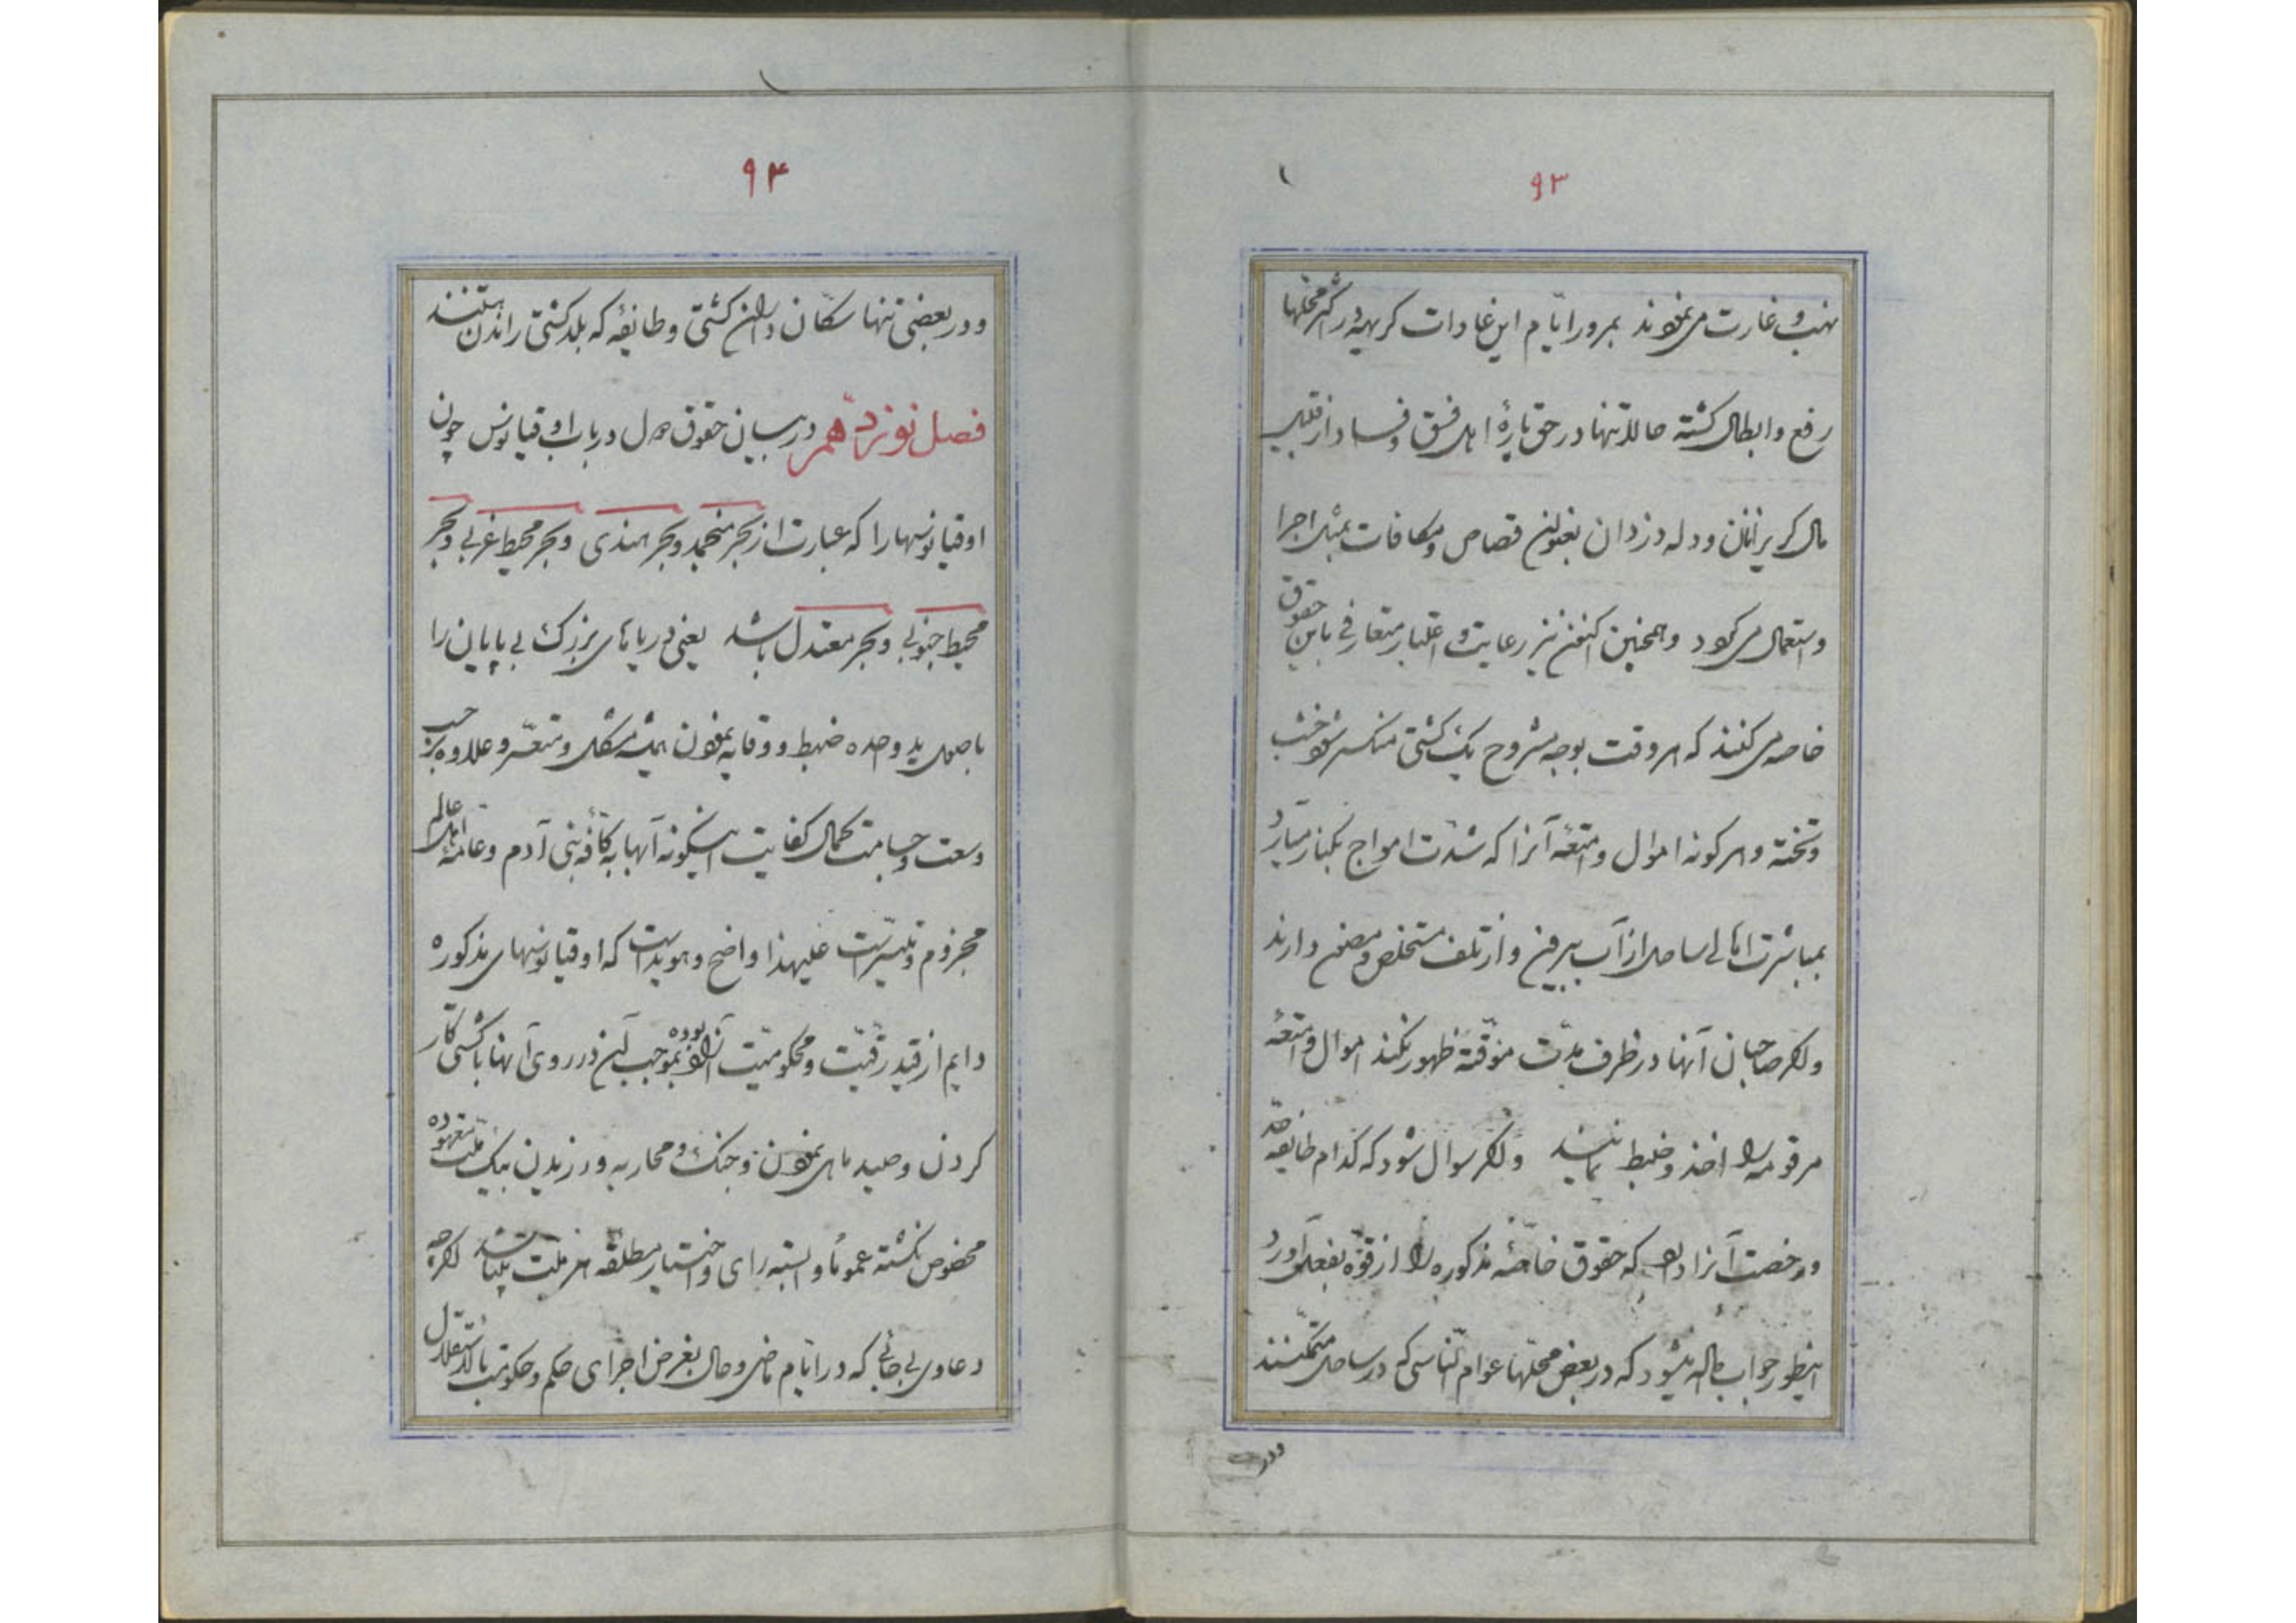 ۹۳
نهب و غارت می‌نمودند بمرور ایّام این عادات کریهه در اکثر محلها
رفع و ابطال کشته حالا تنها در حق پارهٔ اهل فسق و فساد از قبیل
مال کریزانان و دله دزدان بعنوان قصاص و مکافات بمثل اجرا
و استعمال می‌کردد و همچنین اکنون نیز رعایت و اعتبار متعارفی باین حقوق
خاصه می‌کنند که هر وقت بوجه مشروح یک کشتی منکسر شود خشب
و تخته و هر کونه اموال و امتعهٔ آنرا که شدّت امواج بکنار میآرد
بمباشرت اهالی ساحل از آب بیرون و از تلف مستخلص و مصون دارند
و اکر صاحبان آنها در ظرف مدّت موقّته ظهور نکند اموال و امتعهٔ
مرقومه را اخذ و ضبط نمایند و اکر سوال شود که کدام طایفه حدّ
و رخصت آنرا دارد که حقوق خاصّهٔ مذکوره را از قوّه بفعل آورد
اینطور جواب داده میشود که در بعض محلّها عوام النّاسی که در ساحل متمکّنند
و در
۹۴
و در بعضی تنها سکّان داران کشتی و طایفهٔ که بلد کشتی راندن هستند
فصل نوزدهم در بیان حقوق دول در باب اوقیانوس چون
اوقیانوسها را که عبارت از بحر منجمد و بحر هندی و بحر محیط غربی و بحر
محیط جنوبی و بحر معتدل باشد یعنی دریاهای بزرک بی پایان را
باصول ید واحده ضبط و وقایه نمودن همیشه مشکل و متعسّر و علاوه بر حسب
وسعت و جسامت کمال کفایت اینکونه آبها به کافّهٔ بنی آدم و عامهٔ اهل عالم
مجزوم و متیسّر است علیهذا واضح و هویداست که اوقیانوسهای مذکوره
دایم از قید رقیّت و محکومیّت آزاد بوده بموجب این در روی آنها با کشتی کار
کردن و صید ماهی نمودن و جنک و محاربه ورزیدن بیک ملّت معهوده
مخصوص نکشته عموماً وابسته رای و اختیار مطلقهٔ هر ملّت میباشد اکرچه
دعاوی بی‌جائی که در ایّام ماضی و حال بغرض اجرای حکم و حکومت بالاستقلال